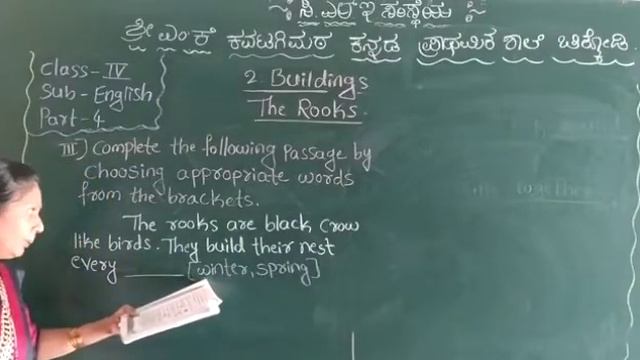 ಸಿ. ಎಲ್ ಇ ಸಂಸ್ಥೆಯ
ಶ್ರೀ ಎಂ ಕೆ ಕವಟಗಿಮಠ ಕನ್ನಡ ಪ್ರಾಥಮಿಕ ಶಾಲೆ ಚಿಕ್ಕೋಡಿ
Class - IV
Sub - English
Part - 4
2. Buildings
The Rooks.
III) Complete the following passage by
choosing appropriate words
from the brackets.
The rooks are black crow
like birds. They build their nest
every ______ [winter, spring]
together